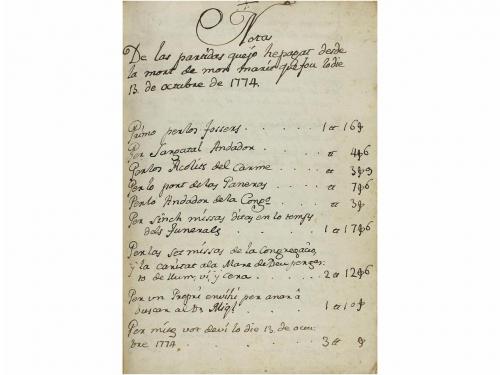 Nota
De las partidas quejo he pagat desde
la mort de mon marit que fou lo die
13. de octubre de 1774.
Primo per los fossers . . . . 1 ₶ 16 ꝭ
Per Sangatal Andador . . . ₶ 4 ꝭ 6
Per los Acolits del Carme . . . ₶ 3 ꝭ 9
Per lo port de las Ganeras . . . ₶ 7 ꝭ 6
Per lo Andador de la Congº . . . ₶ 3 ꝭ
Per sinch missas ditas en lo temps
dels funerals . . . . 1 ₶ 17 ꝭ 6
Per las set missas de la Congregatio
y la caritat a la Mare de Deu per gas-
to de llum, vi y cera . . . . 2 ₶ 12 ꝭ 6
Per un Propri envihi per anar à
buscar al Dr . . . . 1 ₶ 10 ꝭ
Per mitg vot deví lo die 13 de octu-
bre 1774 . . . . 3 ₶ ꝭ